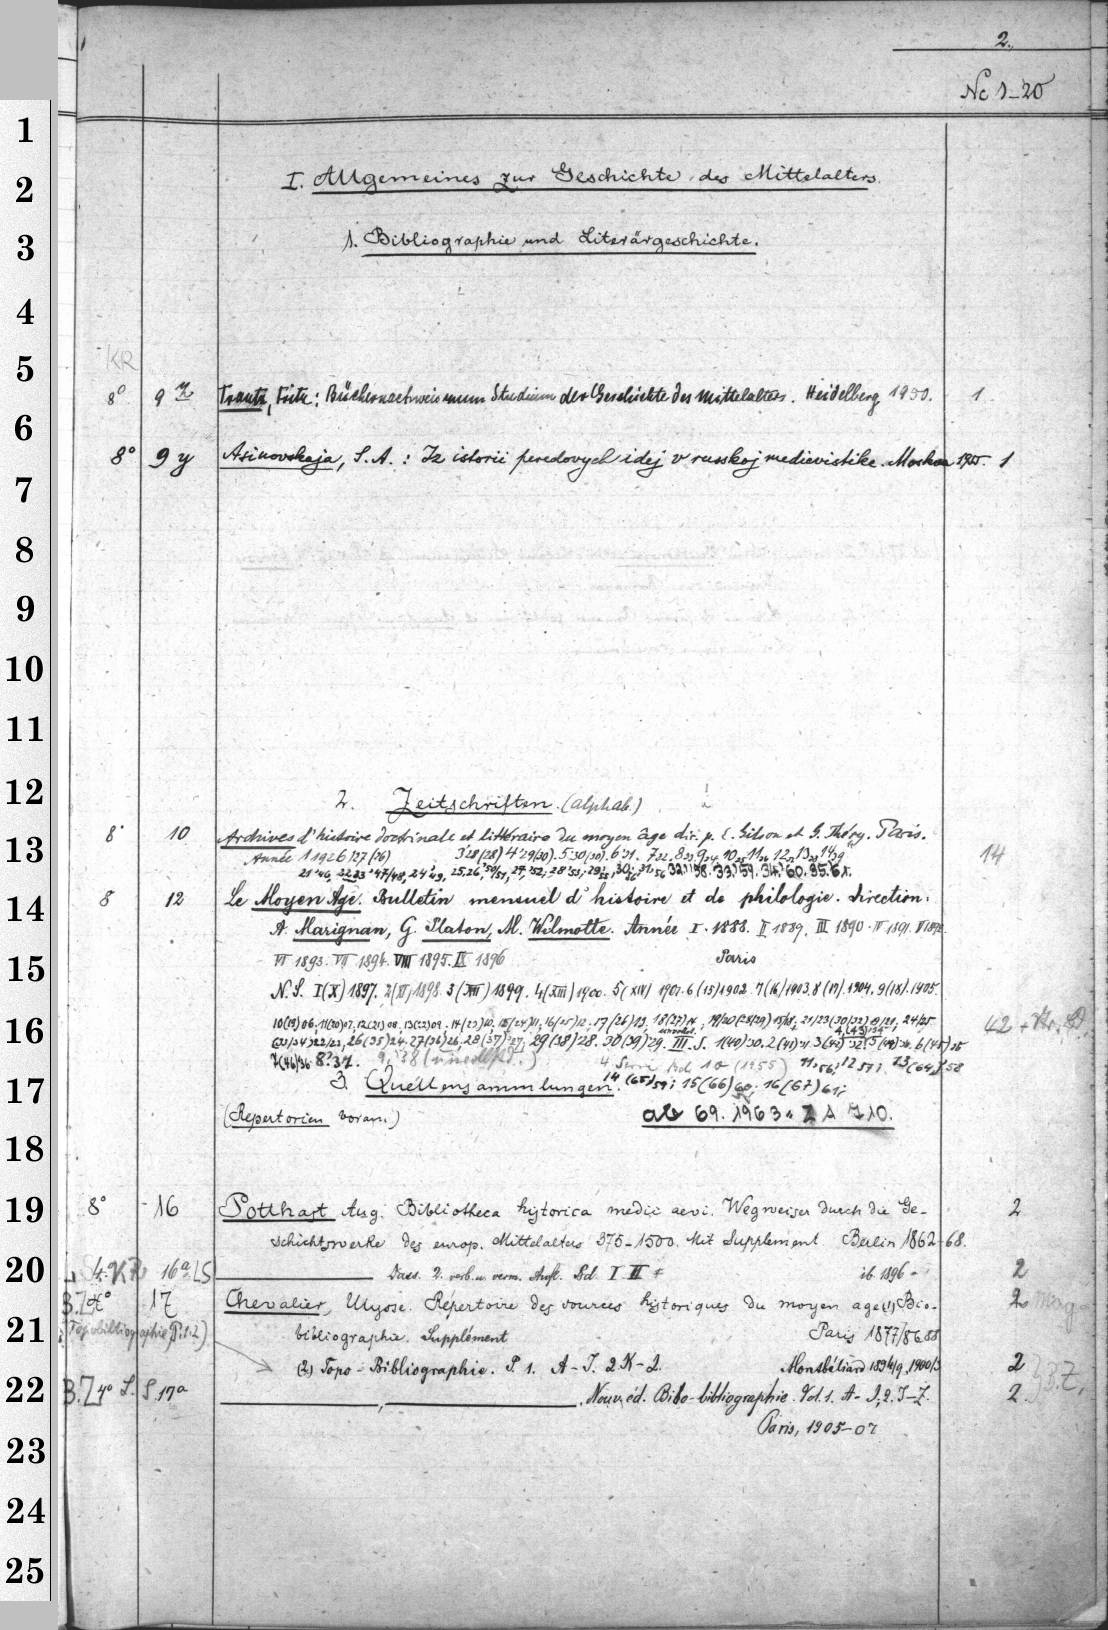 2.
Nc 1-20
I. Allgemeines zur Geschichte des Mittelalters.
1. Bibliographie und Literärgeschichte.
KR
8° 9 z Trautz, Fritz: Büchernachweis zum Studium der Geschichte des Mittelalters. Heidelberg 1950. 1
8° 9 y Asinovskaja, S.A.: Iz istorii peredovych idej v russkoj medievistike. Moskva 1955. 1
2. Zeitschriften (alphab.)
8° 10 Archives d'histoire doctrinale et littéraire du moyen âge dir. p. E. Gilson et G. Théry. Paris.
Année 1 1926/27 (26) 3'28 (28) 4'29 (30). 5'30 (30). 6'31. 7 32. 8 33. 9 34 10 11 12 13 14 39
14
8° 12 Le Moyen Age. Bulletin mensuel d'histoire et de philologie. Direction:
A. Marignan, G. Platon, M. Wilmotte. Année I. 1888. II 1889. III 1890. IV 1891. V 1892.
VI 1893. VII 1894. VIII 1895. IX 1896 Paris
N.S. I(X) 1897. 2(XI) 1898. 3(XII) 1899. 4(XIII) 1900. 5(XIV) 1901. 6(15) 1902. 7(16) 1903. 8(17). 1904. 9(18). 1905.
10(19) 06, 11(20) 07, 12(21) 08, 13(22) 09. 14(23) 10, 15(24) 11, 16(25) 12, 17(26) 13, 18(27) 14, 19/20 (28/29) 15/18, 21/23 (30/32) 24/25
26(35) 24. 27(36) 26, 28(37) 27, 29(38) 28. 30(39) 29. III. S. 1(40) 30. 2(41) 31. 3(42) 32. 6(45) 35
42
7(46) 36. 8.37. 9, 38 (unvollst.) 4. Serie Bd 10 (1955) 11, 56; 12 57; 13 (64) 58
3. Quellensammlungen. 14 (65) 59; 15 (66) 60. 16 (67) 61;
(Repertorien voran.) ab 69. 1963 = Z A 710.
8° 16 Potthast Aug. Bibliotheca historica medii aevi. Wegweiser durch die Ge- 2
schichtswerke des europ. Mittelalters 375-1500. Mit Supplement. Berlin 1862-68.
4. KR 16a LS Dass. 2. verb. u. verm. Aufl. Bd I II + ib. 1896 - 2
B.Z 4° 17 Chevalier, Ulysse. Répertoire des sources historiques du moyen age (1) Bio- 2
(Topobibliographie P. 1.2) bibliographie. Supplément Paris 1877/86.88
(2) Topo-Bibliographie. P 1. A-J. 2 K-Z. Montbéliard 1894/9, 1900/3 2
B.Z 4° LS 17a Nouv. ed. Bibo-bibliographie. Vol. 1. A-I, 2. J-Z. 2. B.Z.
Paris, 1905-07
1
2
3
4
5
6
7
8
9
10
11
12
13
14
15
16
17
18
19
20
21
22
23
24
25